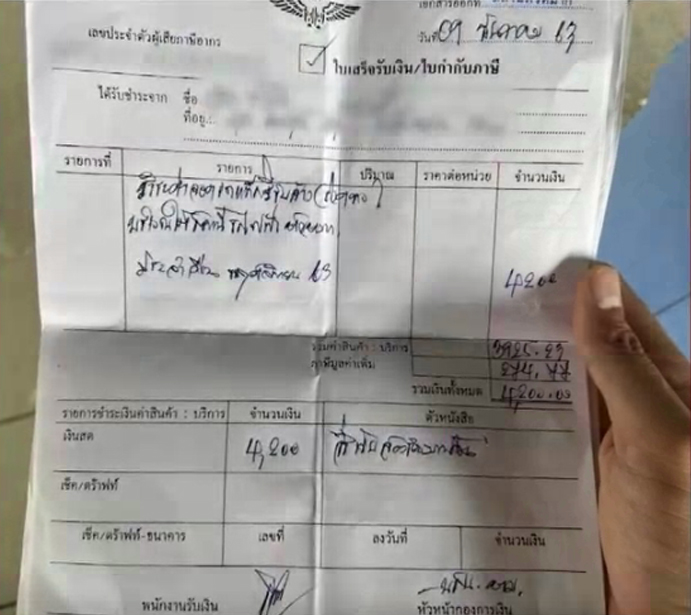 เอกสารออกที่
เลขประจำตัวผู้เสียภาษีอากร
วันที่ 09 ธันวาคม 63
ใบเสร็จรับเงิน/ใบกำกับภาษี
ได้รับชำระจาก ชื่อ
ที่อยู่
รายการที่ รายการ ปริมาณ ราคาต่อหน่วย จำนวนเงิน
ประจำเดือน พฤศจิกายน 63
4200
รวมค่าสินค้า : บริการ 3925.23
ภาษีมูลค่าเพิ่ม 274.77
รวมเงินทั้งหมด 4,200.00
รายการชำระเงินค่าสินค้า : บริการ จำนวนเงิน ตัวหนังสือ
เงินสด 4,200 สี่พันสองร้อยบาทถ้วน
เช็ค/ดร๊าฟท์
เช็ค/ดร๊าฟท์-ธนาคาร เลขที่ ลงวันที่ จำนวนเงิน
พนักงานรับเงิน หัวหน้ากองการเงิน